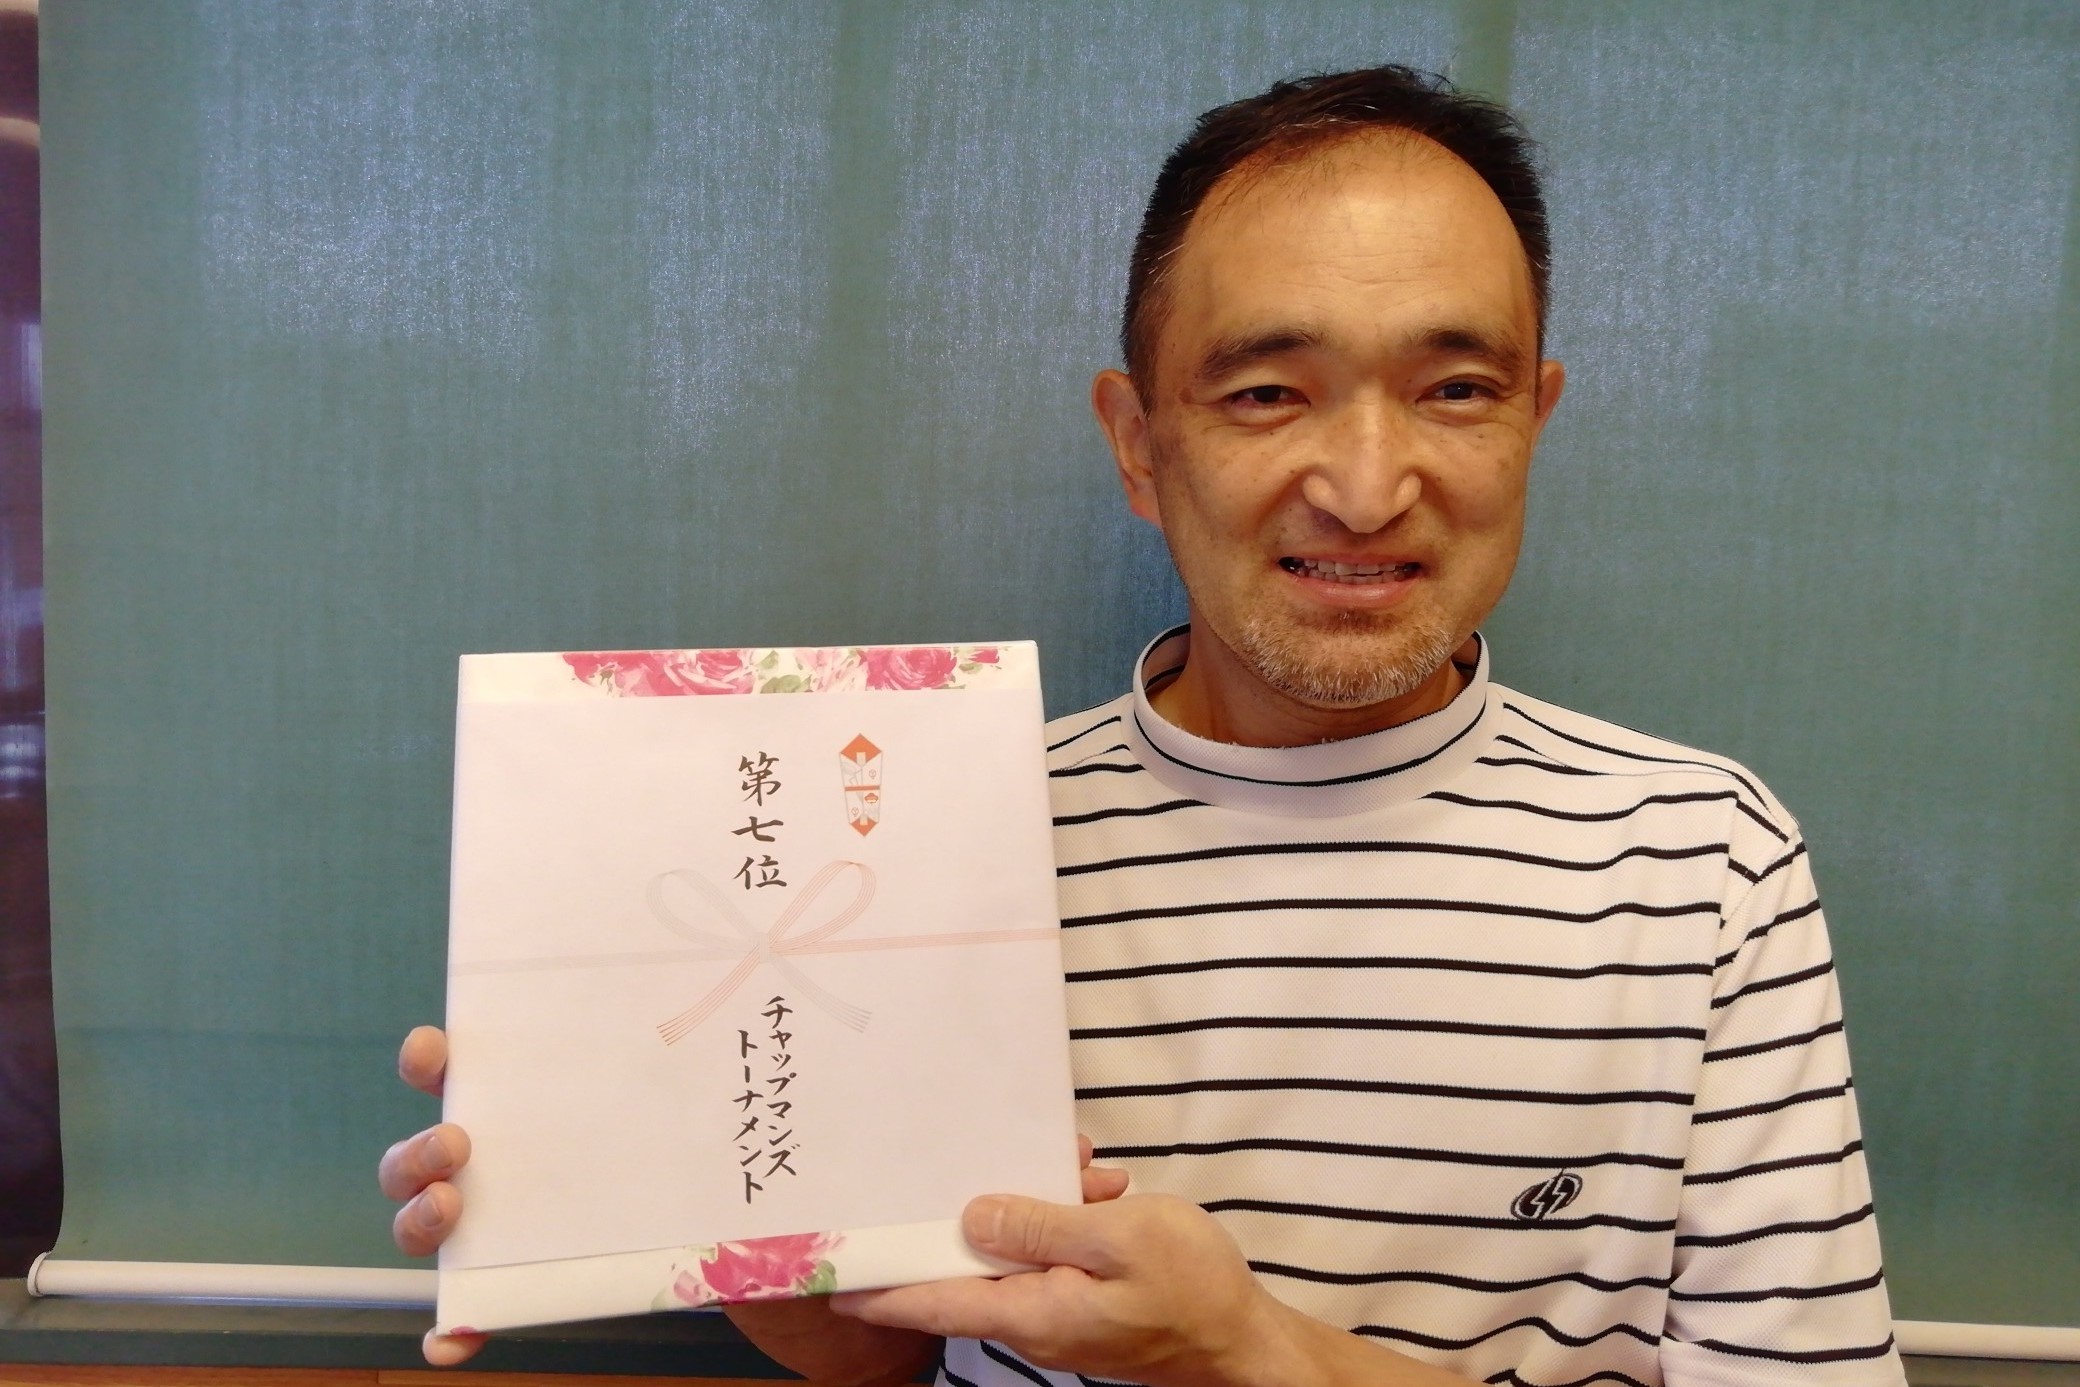 第七位
チャップマンズ
トーナメント